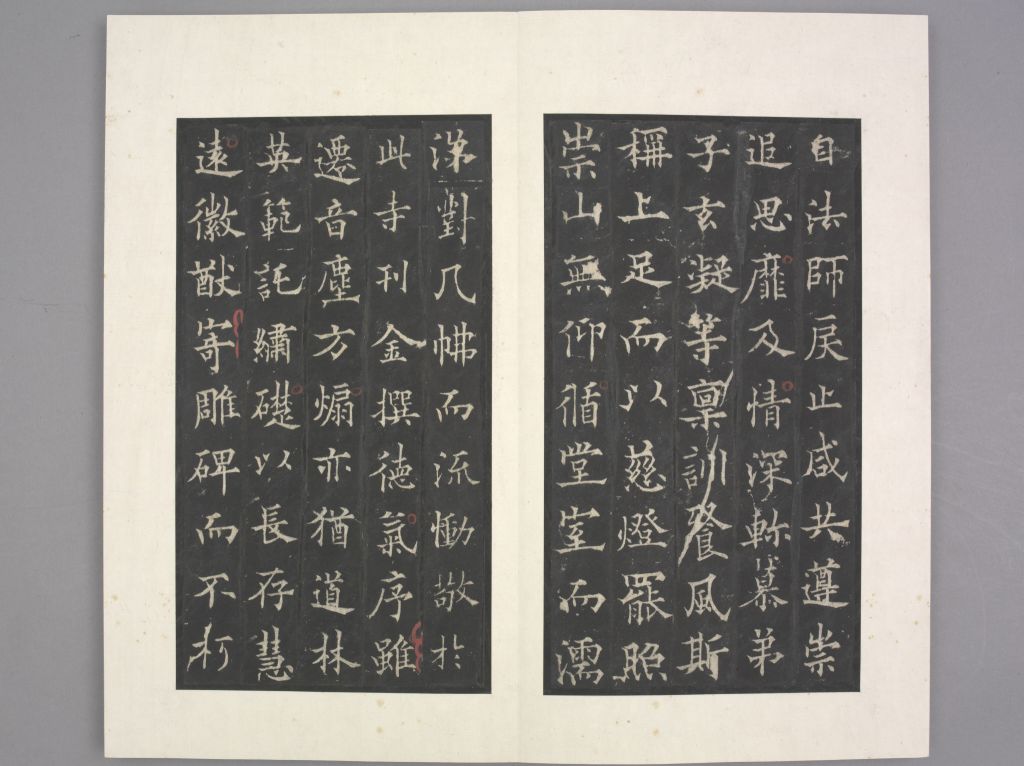 自法師戾止咸共遵崇
追思靡及情深軫慕弟
子玄凝等稟訓飡風斯
稱上足而以慈燈罷照
崇山無仰循堂室而濡
涕對几而流慟敬於
此寺刊金撰德氣序雖
遷音塵方煽亦猶道林
英範託繡礎以長存慧
遠徽猷寄雕碑而不朽